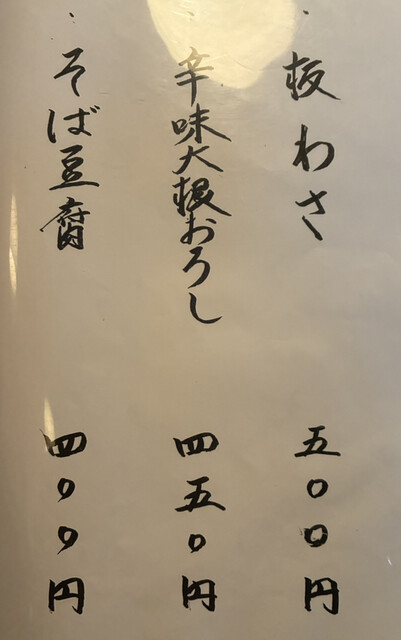 ・板わさ 五〇〇円
・辛味大根おろし 四五〇円
・そば豆腐 四〇〇円